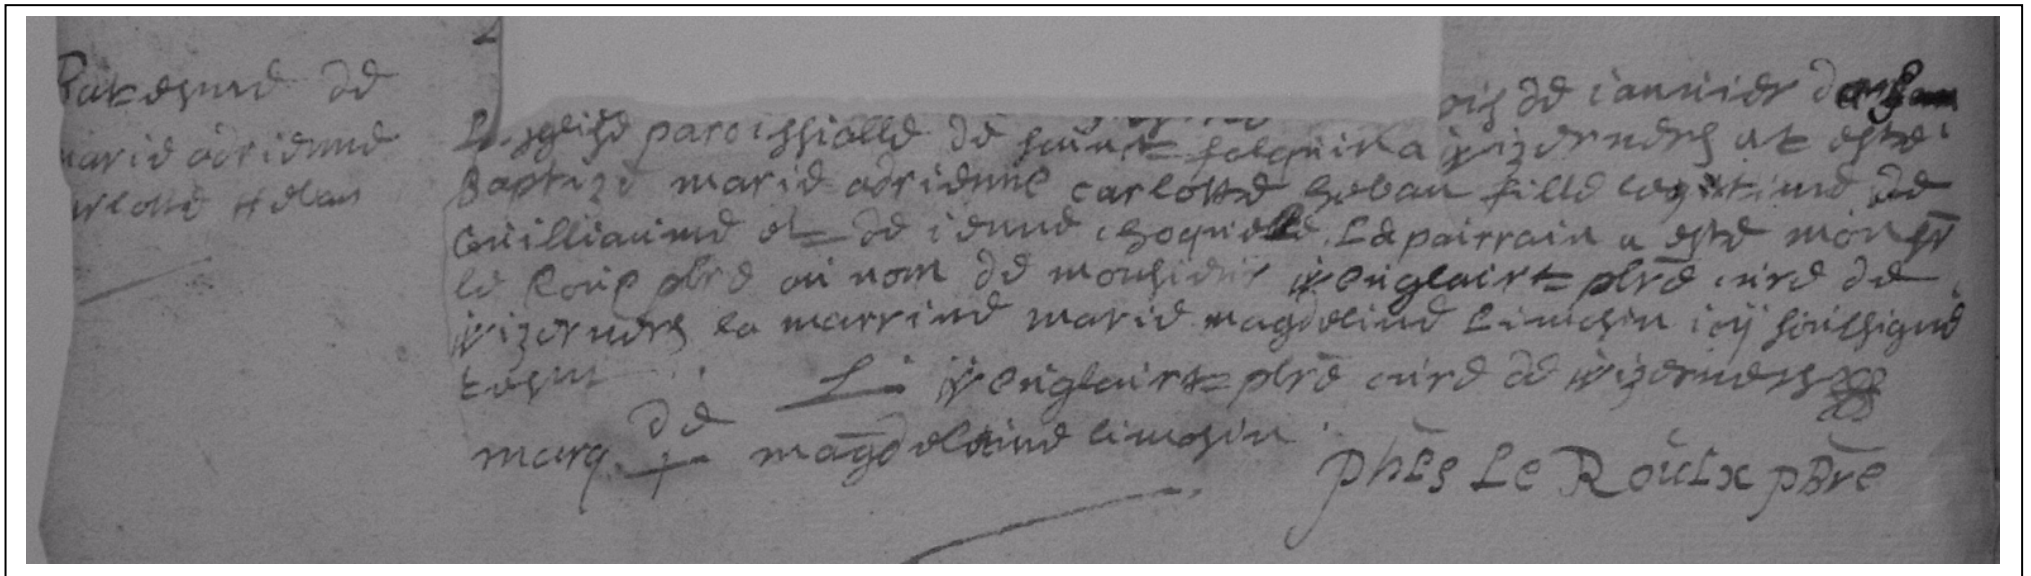 Batesme de
marie adrienne
helan
ois de ianuier dans
L eglise paroissialle de saint folquin a wizernens at esté
Baptize marie adrienne carlotte heban fille legitime de
Guilliaume et de ienne choquelle. Le pairrain a esté monsr
le Roux pbre au nom de monsieur wenglairt pbre curé de
wizernens la marrine marie magdeleine Limosin icy soussigné
tesm
L wenglairt pbre curé de wizernens
marq de magdeleine limosin
phls Le Roulx pbre